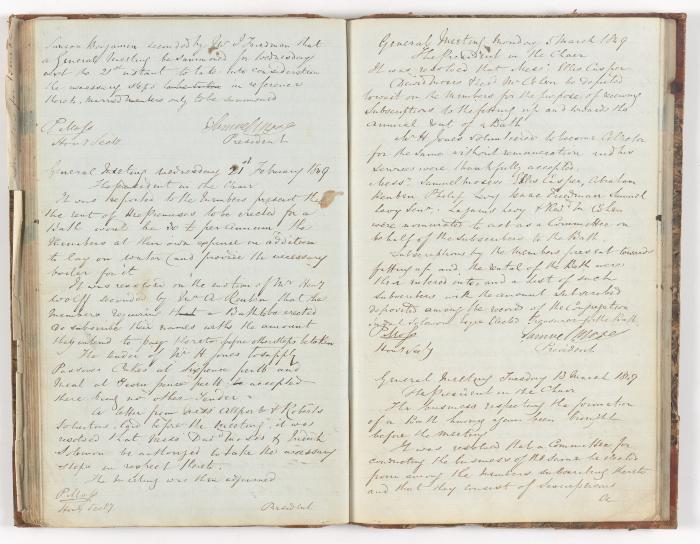 Simeon Benjamin seconded by Mr J Friedman that
a General Meeting be summoned for Wednesday
next the 21st instant to take into consideration
the necessary steps in reference
thereto. married members only to be summoned
P Moss
Hon. Secty
Samuel Moses
President
General Meeting Wednesday 21st February 1849
The President in the Chair
It was reported to the Members present that
the rent of the Premises to be erected for a
Bath would be per annum, the
Members at their own expense in addition
to lay on water (and provide the necessary
boiler for it
It was resolved on the motion of Mr Henry
Woolf seconded by Mr A Reuben that the
members requiring a Bath to be erected
do subscribe their names with the amount
they intend to pay thereto before other steps be taken
The tender of Mr H Jones to supply
Passover Cakes at sixpence per lb and
Meal at seven pence per lb accepted
there being no other Tender
A letter from Messrs Allport & Roberts
Solicitors laid before the Meeting, it was
resolved that Messrs David Moses & Judah
Solomon be authorized to take the necessary
steps in respect thereto.
The Meeting was then adjourned
P Moss
Hon. Secty
President
General Meeting Monday 5 March 1849
The President in the Chair
It was resolved that Messrs Ellis Casper
David Moses & Revd Mr Cohen be deputed
to wait on the Members for the purpose of receiving
Subscriptions to the fitting up and towards the
annual rent of a Bath
Mr H Jones volunteered to become Collector
for the same without remuneration and his
services were thankfully accepted
Messrs Samuel Moses Ellis Casper, Abraham
Reuben Philip Levy Isaac Friedman Samuel
Levy Senr. Lazarus Levy & Revd Mr Cohen
were nominated to act as a Committee on
behalf of the Subscribers to the Bath.
Subscriptions by the Members present towards
fitting up and, the rental of the Bath were
then entered into, and a list of such
subscribers with the amount subscribed
deposited among the records of the Congregation
Judah Solomon Esqre Elected Treasurer for the Bath
P Moss
Hon. Secty
Samuel Moses
President
General Meeting Tuesday 13 March 1849
The President in the Chair
The business respecting the formation
of a Bath having again been brought
before the meeting
It was resolved that a Committee for
conducting the business of the same be elected
from among the Members subscribing thereto
and that they consist of Seven persons